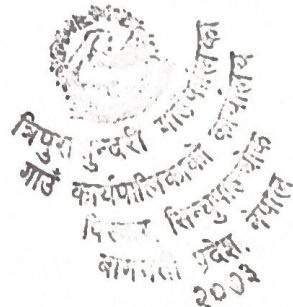 त्रिपुरा सुन्दरी गाउँपालिका
गाउँ कार्यपालिकाको कार्यालय
पिस्कर, सिन्धुपाल्चोक
बागमती प्रदेश, नेपाल
२०७३